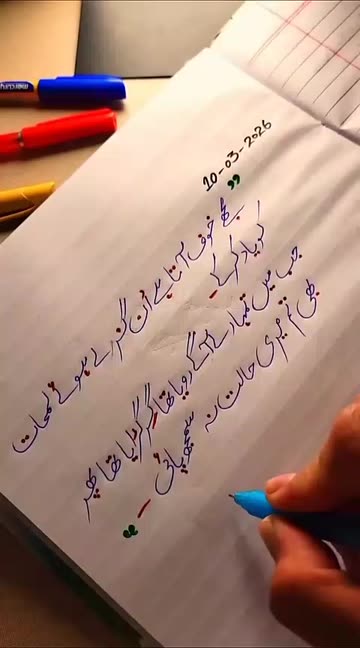 10-03-2026
”
مجھے خوف آتا ہے اُن گزرے ہوئے لمحات
کو یاد کرکے
جب میں تمہارے آگے رویا تھا گڑگڑایا تھا پھر
بھی تم میری حالت نہ سمجھ پائی ۔
“